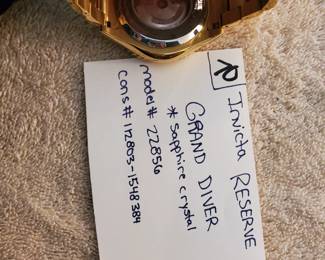 Invicta RESERVE
GRAND DIVER
* Sapphire crystal
model# 22856
cons# 112803-1548384